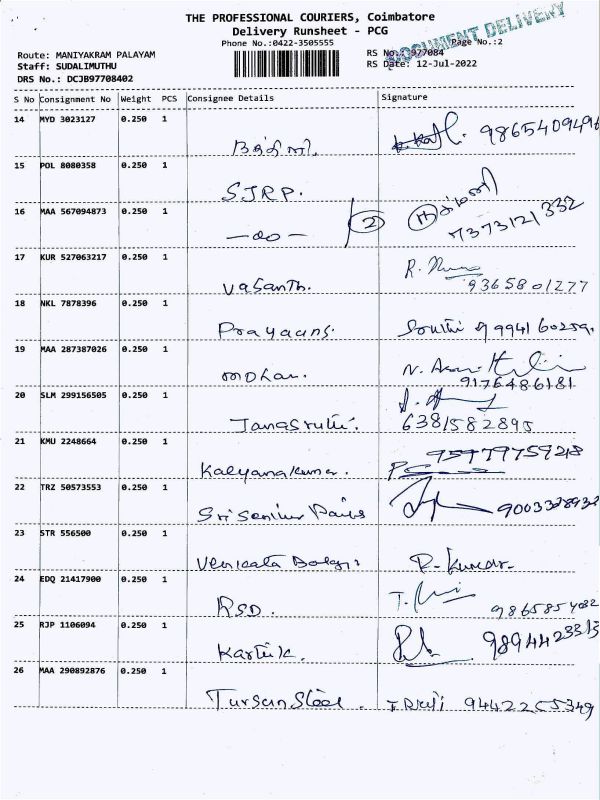 THE PROFESSIONAL COURIERS, Coimbatore
Delivery Runsheet - PCG
DOCUMENT DELIVERY
Phone No.:0422-3505555
Page No.:2
Route: MANIYAKRAM PALAYAM
RS No.: 977084
Staff: SUDALIMUTHU
RS Date: 12-Jul-2022
DRS No.: DCJB97708402
S No Consignment No Weight PCS Consignee Details Signature
14 MYD 3023127 0.250 1
9865409496
15 POL 8080358 0.250 1
SJRP.
16 MAA 567094873 0.250 1
2
7373121332
17 KUR 527063217 0.250 1
Vasanth. R.
9365801277
18 NKL 7878396 0.250 1
Prayaans. 9994160259.
19 MAA 287387026 0.250 1
mohan. N.
9176486181
20 SLM 299156505 0.250 1
Janasruthi. 6381582895
21 KMU 2248664 0.250 1
Kalyanakumar.
22 TRZ 50573553 0.250 1
Sri 9003328932
23 STR 556500 0.250 1
Venkata Balaji R. Kumar.
24 EDQ 21417900 0.250 1
RSD. T.
9865854082
25 RJP 1106094 0.250 1
Karthik. 9894423313
26 MAA 290892876 0.250 1
Tursun Steel. 9442255349